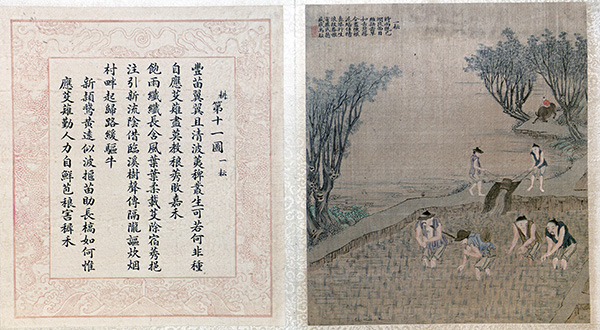 耕 第十一圖 一耘
豐苗翼翼出清波荑稗叢生可若何非種
自應芟薙盡莫教稂莠敗嘉禾
飽雨纖纖長含風葉葉柔載芟除宿莠挹
注引新流陰借臨溪樹聲傳隔隴謳炊烟
村畔起歸路緩驅牛
新頴鶯黃遠似波揠苗助長槁如何惟
應芟薙勤人力自鮮苞稂害禾
一耘